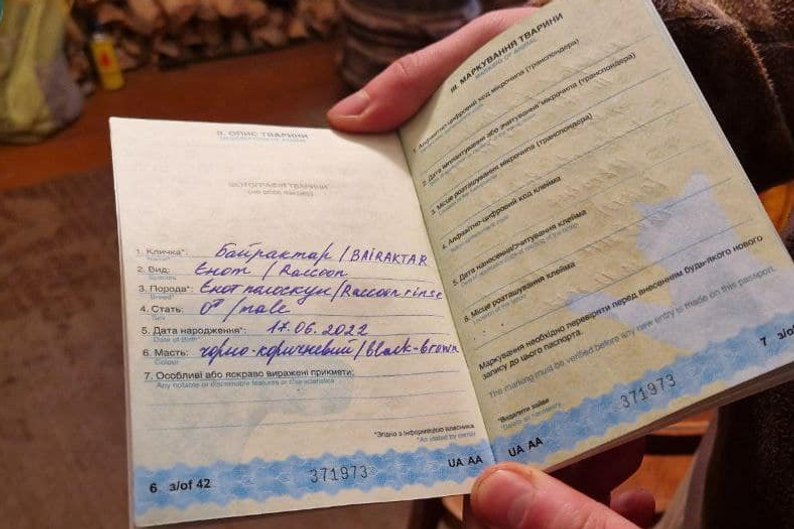 II. ОПИС ТВАРИНИ
DESCRIPTION OF ANIMAL
ФОТОГРАФІЯ ТВАРИНИ
1. Кличка*: Байрактар / BAIRAKTAR
Name*:
2. Вид: Єнот / Raccoon
Species:
3. Порода*: Єнот полоскун / Raccoon rinse
Breed*:
4. Стать: ♂ / male
Sex:
5. Дата народження*: 17.06.2022
Date of Birth*:
6. Масть: чорно-коричневий / black-brown
Colour:
7. Особливі або яскраво виражені прикмети:
Any notable or discernable features or characteristics:
*Згідно з інформацією власника
*As stated by owner
6 з/of 42
371973
UA AA
III. МАРКУВАННЯ ТВАРИНИ
MARKING OF ANIMAL
1. Алфавітно-цифровий код мікрочипа (транспондера)
2. Дата імплантування або зчитування мікрочипа (транспондера)
3. Місце розташування мікрочипа (транспондера)
4. Алфавітно-цифровий код клейма
5. Дата нанесення/зчитування клейма
6. Місце розташування клейма
Маркування необхідно перевірити перед внесенням будь-якого нового
запису до цього паспорта.
The marking must be verified before any new entry is made on this passport.
*Видалити зайве
7 з/of
371973
UA AA